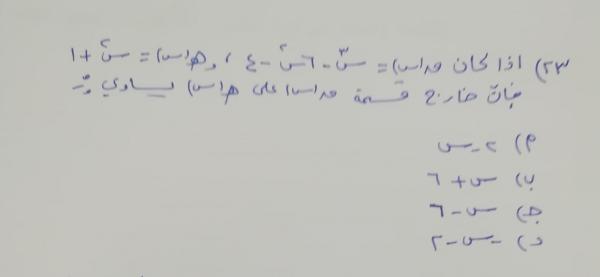 ٢٣) اذا كان ق(س) = س٣ - ٦س٢ - ٤ ، و هـ(س) = س٢ + ١
فإن خارج قسمة ق(س) على هـ(س) يساوي :-
م) ٢ - س
ب) س + ٦
جـ) س - ٦
د) - س - ٢